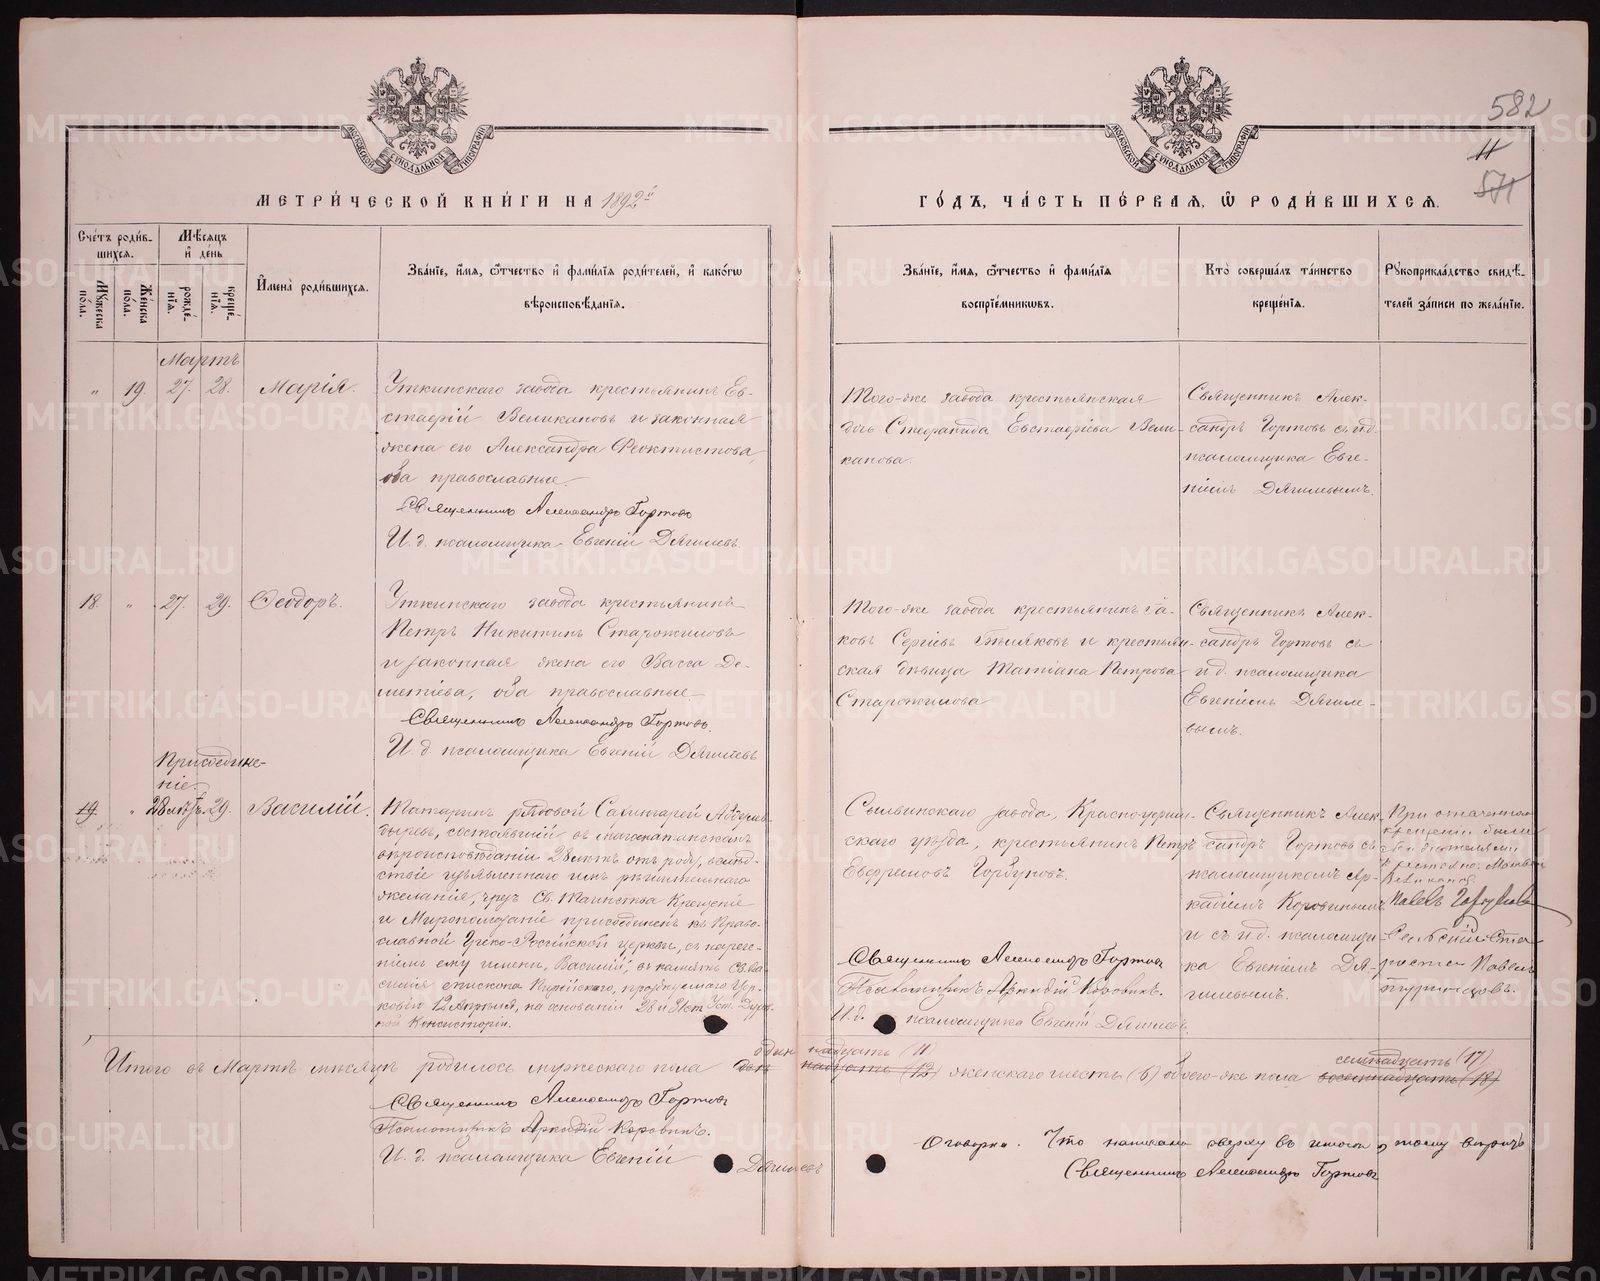 582
11
571
МОСКОВСКОЙ СѴНОДАЛЬНОЙ ТИПОГРАФІИ
МОСКОВСКОЙ СѴНОДАЛЬНОЙ ТИПОГРАФІИ
МЕТРИ́ЧЕСКОЙ КНИ́ГИ НА 1892й
ГО́ДЪ, ЧА́СТЬ ПЕ́РВАЯ, Ѡ РОДИ́ВШИХСЯ.
Сче́тъ роди́в-
шихся.
Му́жеска по́ла.
Же́нска по́ла.
Мѣ́сяцъ
и́ де́нь
рожде́-
нїя.
креще́-
нїя.
И҆мена̀ роди́вшихся.
Зва́нїе, и́мя, ѻ҆́тчество и҆ фами́лїя роди́телей, и҆ како́гѡ
вѣроисповѣ́данїя.
Зва́нїе, и́мя, ѻ҆́тчество и҆ фами́лїя
воспрїе́мникѡвъ.
Кто̀ соверша́лъ та́инство
креще́нїя.
Рꙋкоприкла́дство свидѣ́-
телей за́писи по жела́нїю.
Мартъ
„ 19. 27. 28. Марія.
Уткинскаго завода крестьянинъ Ев-
стафій Великановъ и законная
жена его Александра Феоктистова,
оба православные.
Священникъ Александръ Гортовъ
И. д. псаломщика Евгеній Дягилевъ.
Того-же завода крестьянская
дочь Стефанида Евстафіева Вели-
канова.
Священникъ Алек-
сандръ Гортовъ съ и.д.
псаломщика Евге-
ніемъ Дягилевымъ.
18. „ 27. 29. Ѳеодоръ.
Уткинскаго завода крестьянинъ
Петръ Никитинъ Старожиловъ
и законная жена его Васса Де-
метіева, оба православные
Священникъ Александръ Гортовъ.
И. д. псаломщика Евгеній Дягилевъ
Того-же завода крестьянинъ Іа-
ковъ Сергіевъ и крестьян-
ская дѣвица Татіана Петрова
Старожилова
Священникъ Алек-
сандръ Гортовъ съ
и д. псаломщика
Евгеніемъ Дягиле-
вымъ.
Присоедине-
ніе.
19. „ 28 лѣтъ. 29. Василій.
Татаринъ рядовой
состоявшій въ магометанскомъ
вѣроисповѣданіи 28 лѣтъ отъ роду, вслѣд-
ствіе изъявленнаго имъ рѣшительнаго
желанія, чрезъ Св. Таинства Крещеніе
и Миропомазаніе присоединенъ къ Право-
славной Греко-Россійской церкви, съ нарече-
ніемъ ему имени „Василій“, въ память Св. Ва-
силія епископа Парійскаго, празднуемаго Цер-
ковію 12 Апрѣля, на основаніи 28 и ст. Уст. Духов-
ной Консисторіи.
Сылвинскаго завода, Красноуфим-
скаго уѣзда, крестьянинъ Петръ
Евфремовъ Горбуновъ.
Священникъ Александръ Гортовъ
Псаломщикъ Аркадій Коровинъ.
И.д. псаломщика Евгеній Дягилевъ
Священникъ Алек-
сандръ Гортовъ съ
псаломщикомъ Ар-
кадіемъ Коровинымъ
и съ и д. псаломщи-
ка Евгеніемъ Дя-
гилевымъ.
При означенномъ
крещеніи были
свидѣтелями
Павелъ
Сельскій Ста-
роста Павелъ
одинъ надцать (11) семнадцать (17)
Итого въ Мартѣ мѣсяцѣ родилось мужескаго пола двѣ надцать (12) женскаго шесть (6) обоего-же пола восемнадцать (18)
Священникъ Александръ Гортовъ
Псаломщикъ Аркадій Коровинъ.
И. д. псаломщика Евгеній Дягилевъ
Оговорка. Что написано сверху въ итогѣ, тому вѣрить
Священникъ Александръ Гортовъ
METRIKI.GASO-URAL.RU